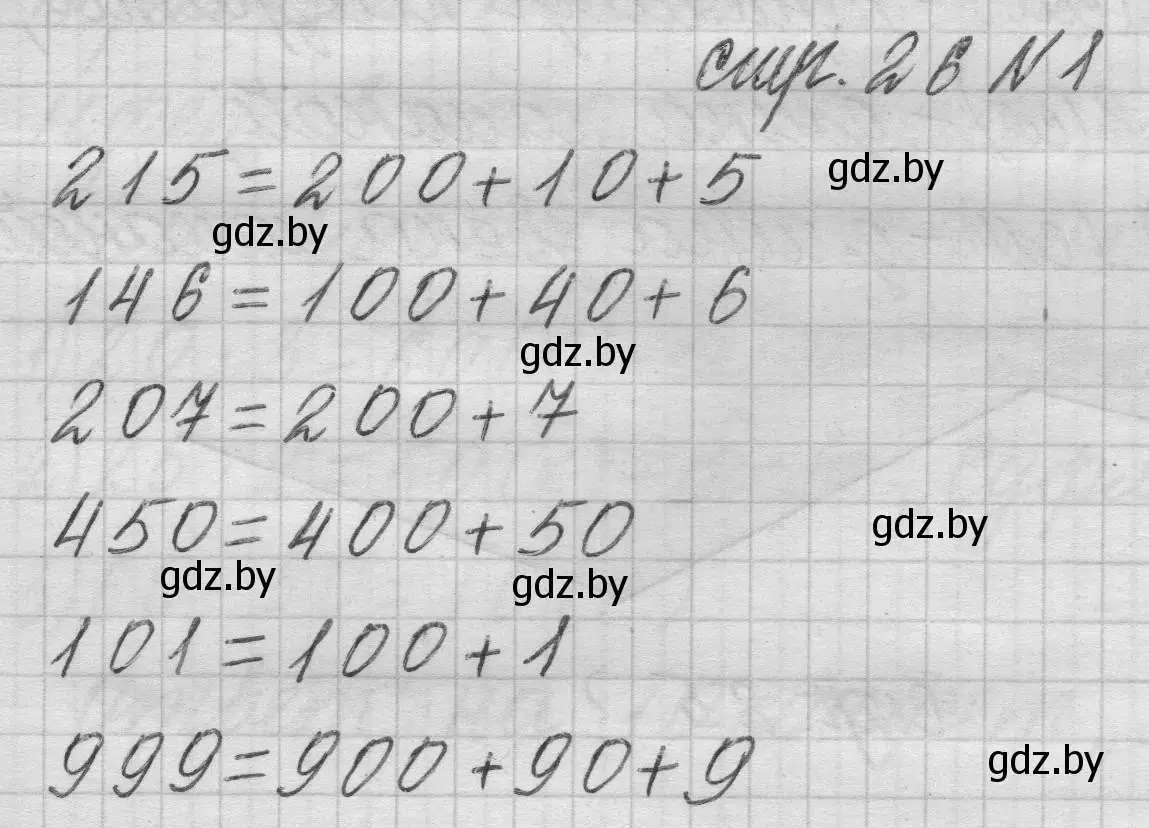 стр. 26 N 1
215 = 200 + 10 + 5 gdz.by
gdz.by
146 = 100 + 40 + 6
gdz.by
207 = 200 + 7
450 = 400 + 50 gdz.by
gdz.by gdz.by
101 = 100 + 1
999 = 900 + 90 + 9 gdz.by